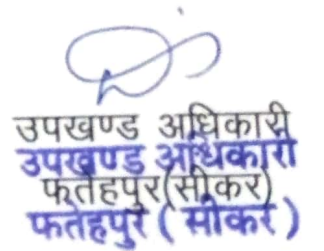 उपखण्ड अधिकारी
उपखण्ड अधिकारी
फतेहपुर(सीकर)
फतेहपुर ( सीकर )